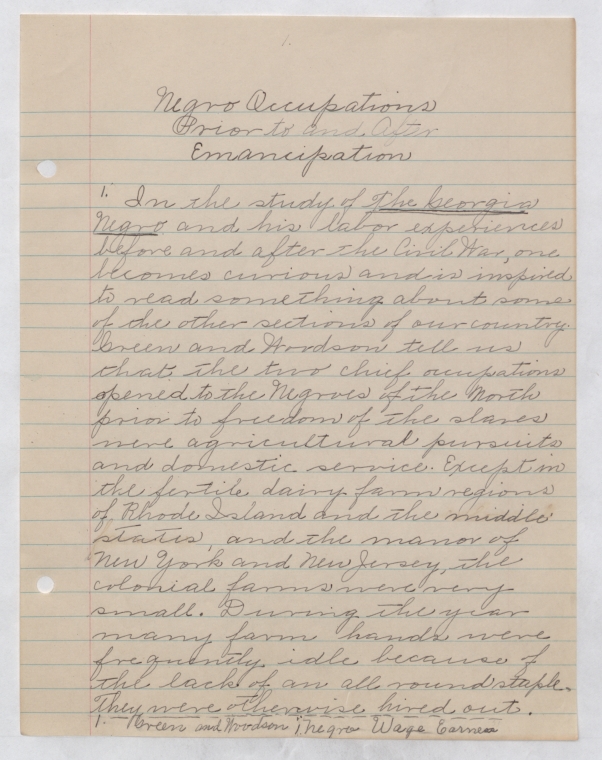 1.
Negro Occupations
Prior to and After
Emancipation
1. In the study of The Georgia
Negro and his labor experiences
before and after the Civil War, one
becomes curious and is inspired
to read something about some
of the other sections of our country.
Green and Woodson tell us
that the two chief occupations
opened to the Negroes of the North
prior to freedom of the slaves
were agricultural pursuits
and domestic service. Except in
the fertile dairy farm regions
of Rhode Island and the middle
states, and the manor of
New York and New Jersey, the
colonial farms were very
small. During the year
many farm hands were
frequently idle because of
the lack of an all round staple.
They were otherwise hired out.
1. Green and Woodson; Negro Wage Earner